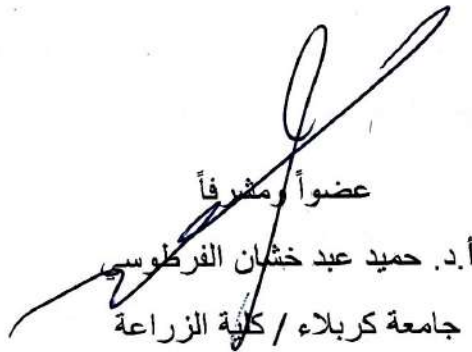 عضواً ومشرفاً
أ.د. حميد عبد خشان الفرطوسي
جامعة كربلاء / كلية الزراعة